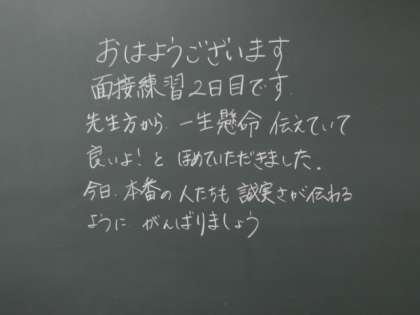 おはようございます
面接練習2日目です.
先生方から、一生懸命伝えていて
良いよ!と ほめていただきました。
今日、本番の人たちも 誠実さが伝わる
ように がんばりましょう